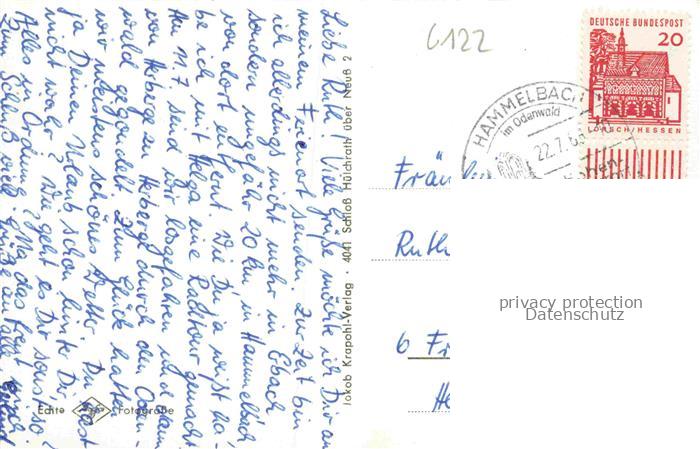 Liebe Ruth! Viele Grüße möchte ich Dir aus
meinem Ferienort senden. Zur Zeit bin
ich allerdings nicht mehr in Ebach
sondern ungefähr 20 km, in Hammelbach,
von dort entfernt. Wie Du ja weißt ha-
be ich mit Helga eine Radtour gemacht.
Am 11.7. sind wir losgefahren und dann
von Herberge zu Herberge durch den Oden-
wald gegondelt. Zum Glück hatten
wir meistens schönes Wetter. Du hast
ja Deinen Urlaub schon hinter Dir,
nicht wahr? Wie geht es Dir sonst, so
Alles in Ordnung?
Zum Schluß viele Grüße an alle
Echte Fotografie
Jakob Krapohl-Verlag · 4041 Schloß Hülchrath über Neuß 2
6122
DEUTSCHE BUNDESPOST
20
LORSCH/HESSEN
HAMMELBACH
im Odenwald
22.7.6
Fräu
Ruth
6 Fr
He
privacy protection
Datenschutz